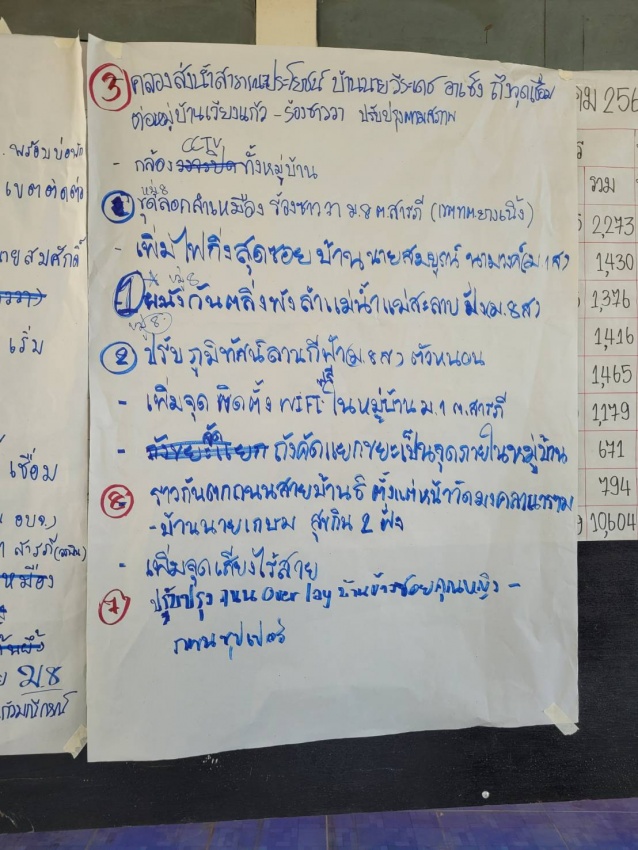 ③ คลองส่งน้ำสาธารณประโยชน์ บ้านนายวีระเดช อาแซ็ง ถึงจุดเชื่อม
ต่อหมู่บ้านเวียงแก้ว - ร้องชาววา ปรับปรุงตามสภาพ
CCTV
- กล้อง ทั้งหมู่บ้าน
หมู่ 8
ขุดลอกลำเหมือง ร้องชาววา ม.8 ต.สารภี
- เพิ่มไฟกิ่งสุดซอยบ้านนายสมบูรณ์ นามวงค์ (ม 1 ส)
* หมู่ 8
① ผนังกันตลิ่งพังลำแม่น้ำแม่สะลาบ ฝั่ง (ม.8 ส)
หมู่ 8
② ปรับภูมิทัศน์ลานกีฬา (ม 8 ส) ตัวหนอน
ฟรี
- เพิ่มจุด ติดตั้ง WIFI ในหมู่บ้าน ม.1 ต.สารภี
- ถังคัดแยกขยะเป็นจุดภายในหมู่บ้าน
⑧ ราวกันตกถนนสายบ้านธิ ตั้งแต่หน้าวัดมงคลวนาราม
- บ้านนายเกษม สุขกิน 2 ฝั่ง
- เพิ่มจุดเสียงไร้สาย
⑦ ปรับปรุง ถนน Over lay บ้าน ซอยคุณหญิง -
ถนนซุปเปอร์
พร้อมบ่อพัก
เขตติดต่อ
นายสมศักดิ์
เริ่ม
เชื่อม
อบจ.)
สารภี
เหมือง
ม.8
คม 256
รวม
2,273
1,430
1,376
1,416
1,465
1,179
671
794
10,604